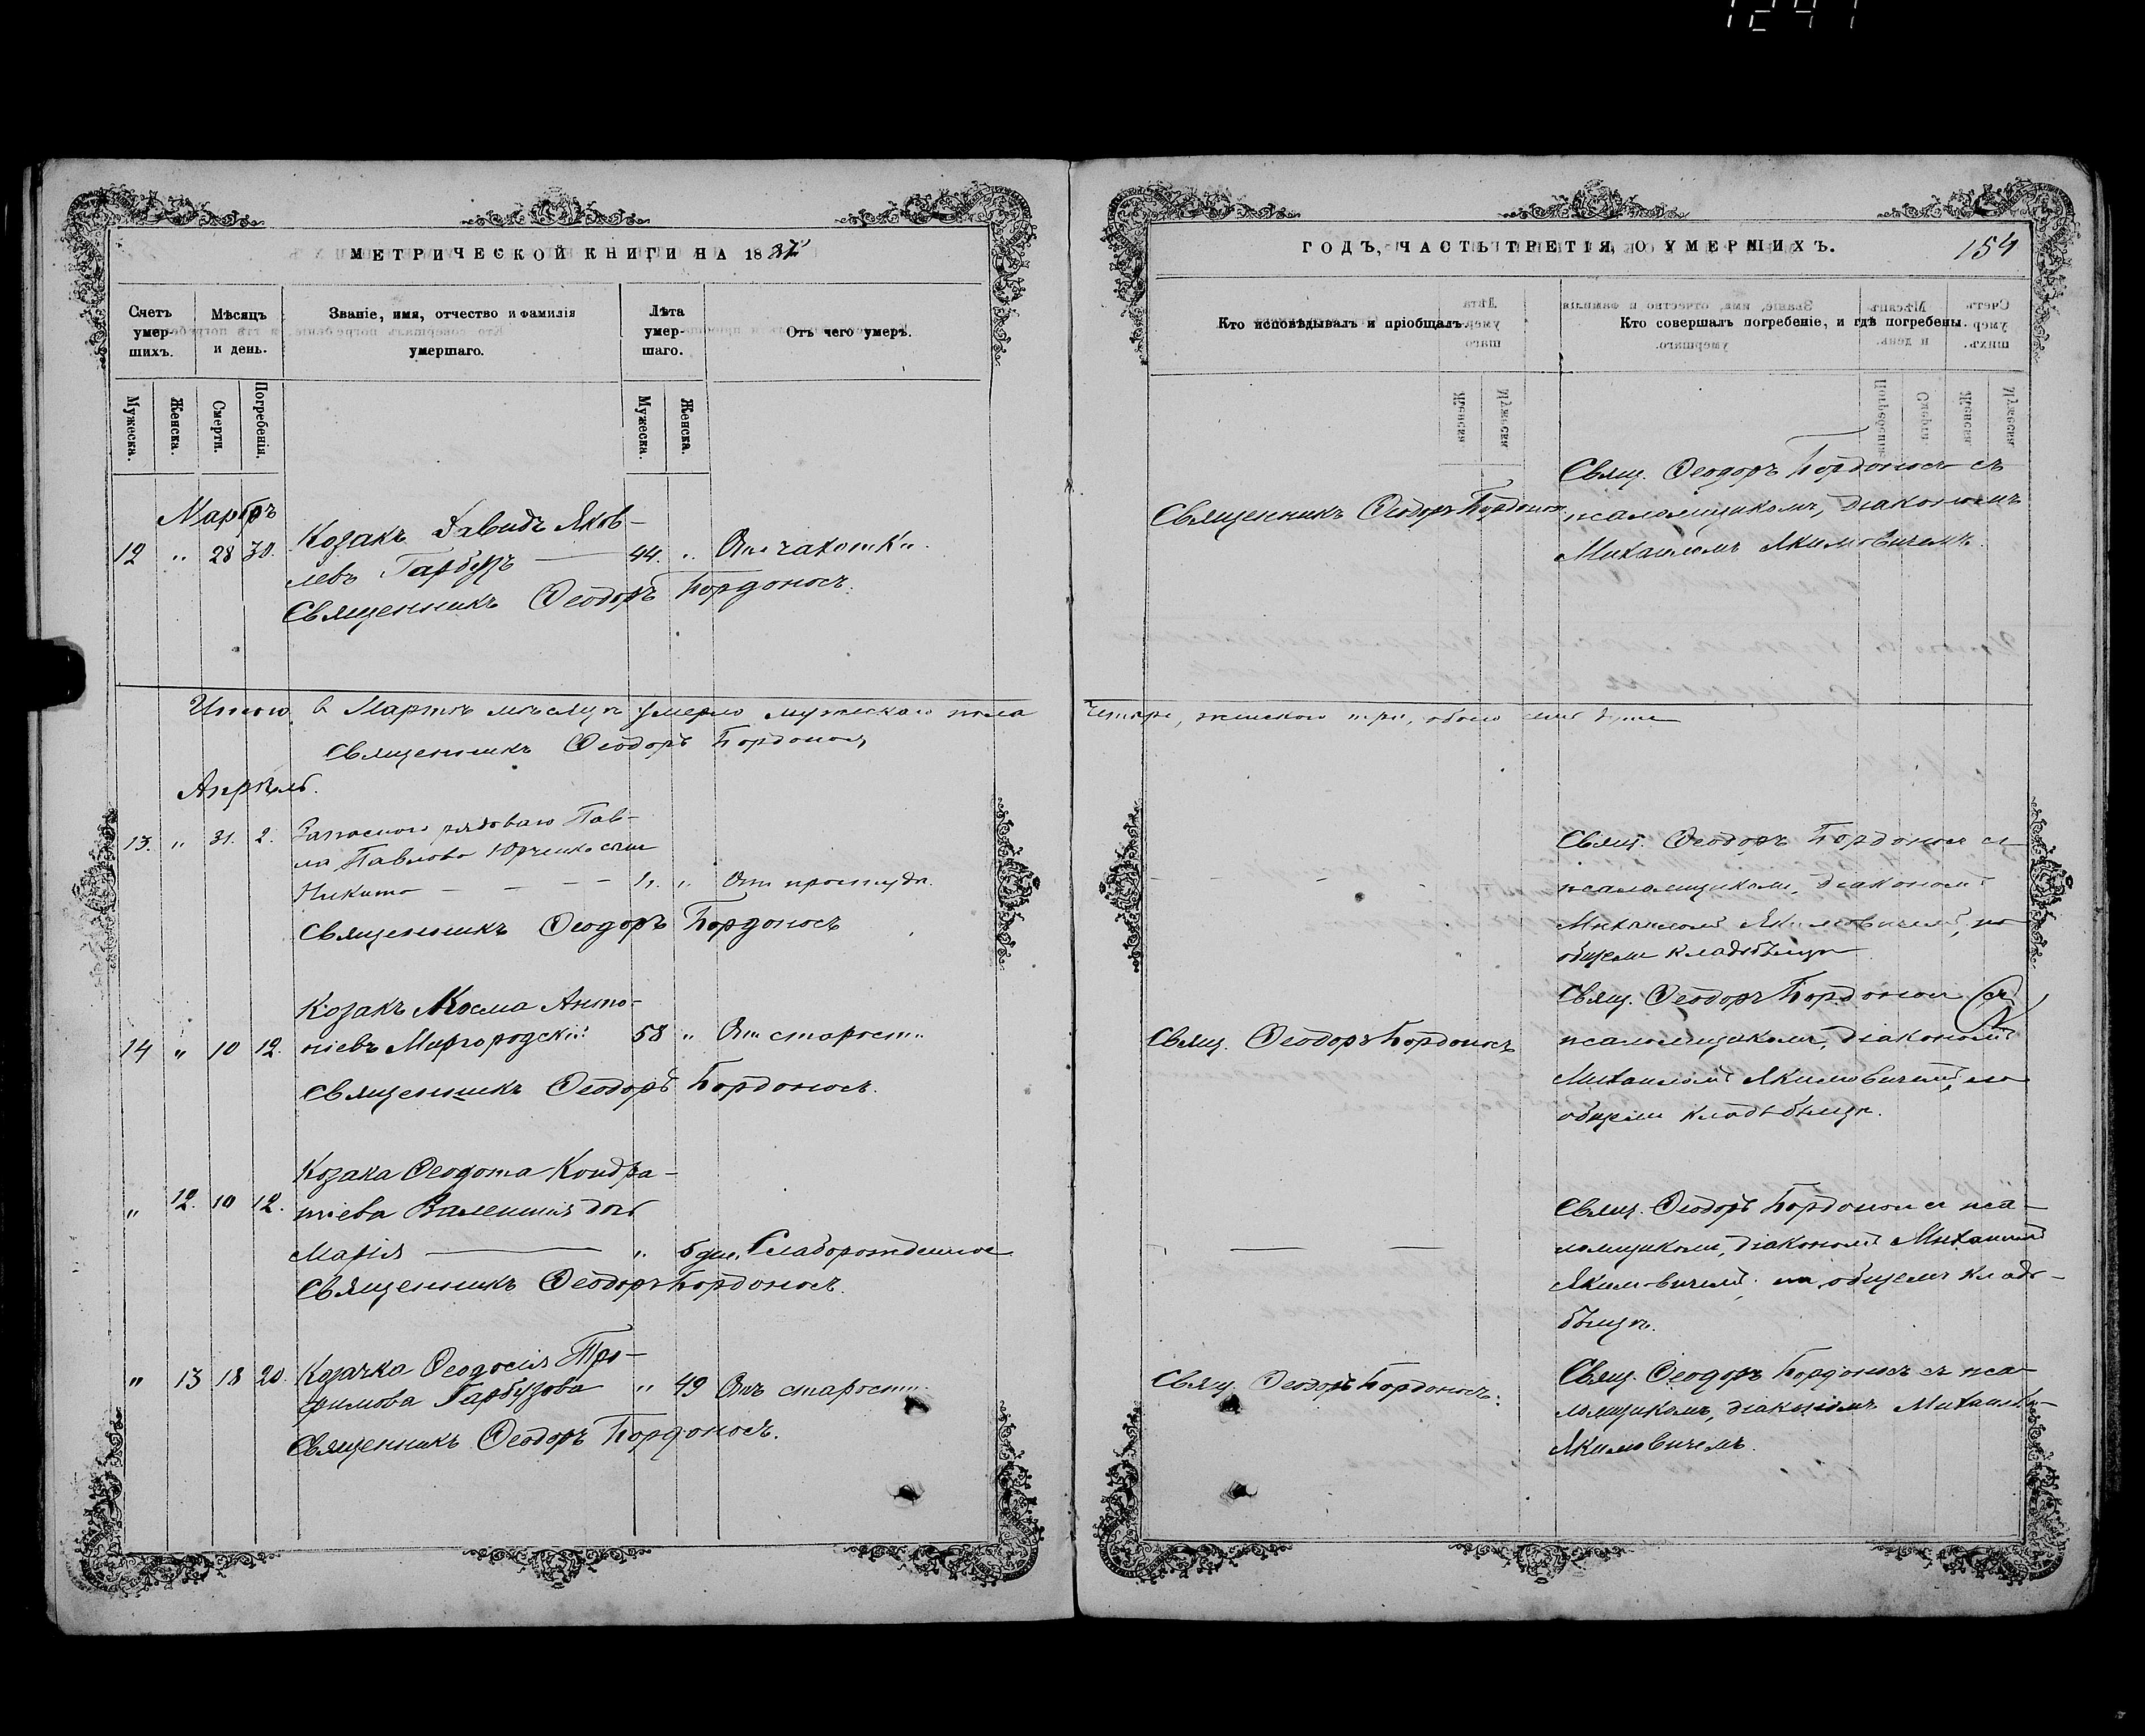 1241
МЕТРИЧЕСКОЙ КНИГИ НА 1887
Счетъ умер-шихъ.
Мѣсяцъ и день.
Званіе, имя, отчество и фамилія умершаго.
Лѣта умер-шаго.
Отъ чего умеръ.
Мужеска.
Женска.
Смерти.
Погребенія.
Мужеска.
Женска.
Мартъ
12 " 28 30. Козакъ Давидъ Яков-
левъ Гарбузъ — 44. " Отъ чахотки.
Священникъ Ѳеодоръ Бордоносъ.
Итого въ Мартѣ мѣсяцѣ умерло мужескаго пола
Священникъ Ѳеодоръ Бордоносъ
Апрѣль.
13. " 31. 2. Запасного рядоваго Пав-
ла Павлова Юрченко сынъ
Никита — — — " Отъ простуды.
Священникъ Ѳеодоръ Бордоносъ
Козакъ Косма Анто-
14 " 10 12. ніевъ Миргородскій 58 " Отъ старости
Священникъ Ѳеодоръ Бордоносъ.
Козака Ѳеодота Кондра-
" 12. 10 12. тіева дочь
Марія — " 5 дн. Слаборожденное
Священникъ Ѳеодоръ Бордоносъ.
" 13 18 20. Козачка Ѳеодосія Тро-
фимова Гарбузова " 49 Отъ старости.
Священникъ Ѳеодоръ Бордоносъ.
ГОДЪ, ЧАСТЬ ТРЕТІЯ, О УМЕРШИХЪ.
154
Кто исповѣдывалъ и пріобщалъ.
Кто совершалъ погребеніе, и гдѣ погребены.
Священникъ Ѳеодоръ Бордоносъ
Свящ. Ѳеодоръ Бордоносъ съ
псаломщикомъ, діакономъ
Михаиломъ Якимовичемъ.
четыре, женскаго три, обоего семь душъ
— — —
Свящ. Ѳеодоръ Бордоносъ съ
псаломщикомъ, діакономъ
Михаиломъ Якимовичемъ, на
общемъ кладбищѣ
Свящ. Ѳеодоръ Бордоносъ
Свящ. Ѳеодоръ Бордоносъ съ
псаломщикомъ, діакономъ
Михаиломъ Якимовичемъ, на
общемъ кладбищѣ.
— —
Свящ. Ѳеодоръ Бордоносъ съ пса-
ломщикомъ, діакономъ Михаиломъ
Якимовичемъ, на общемъ клад-
бищѣ.
Свящ. Ѳеодоръ Бордоносъ.
Свящ. Ѳеодоръ Бордоносъ съ пса-
ломщикомъ, діакономъ Михаиломъ
Якимовичемъ.